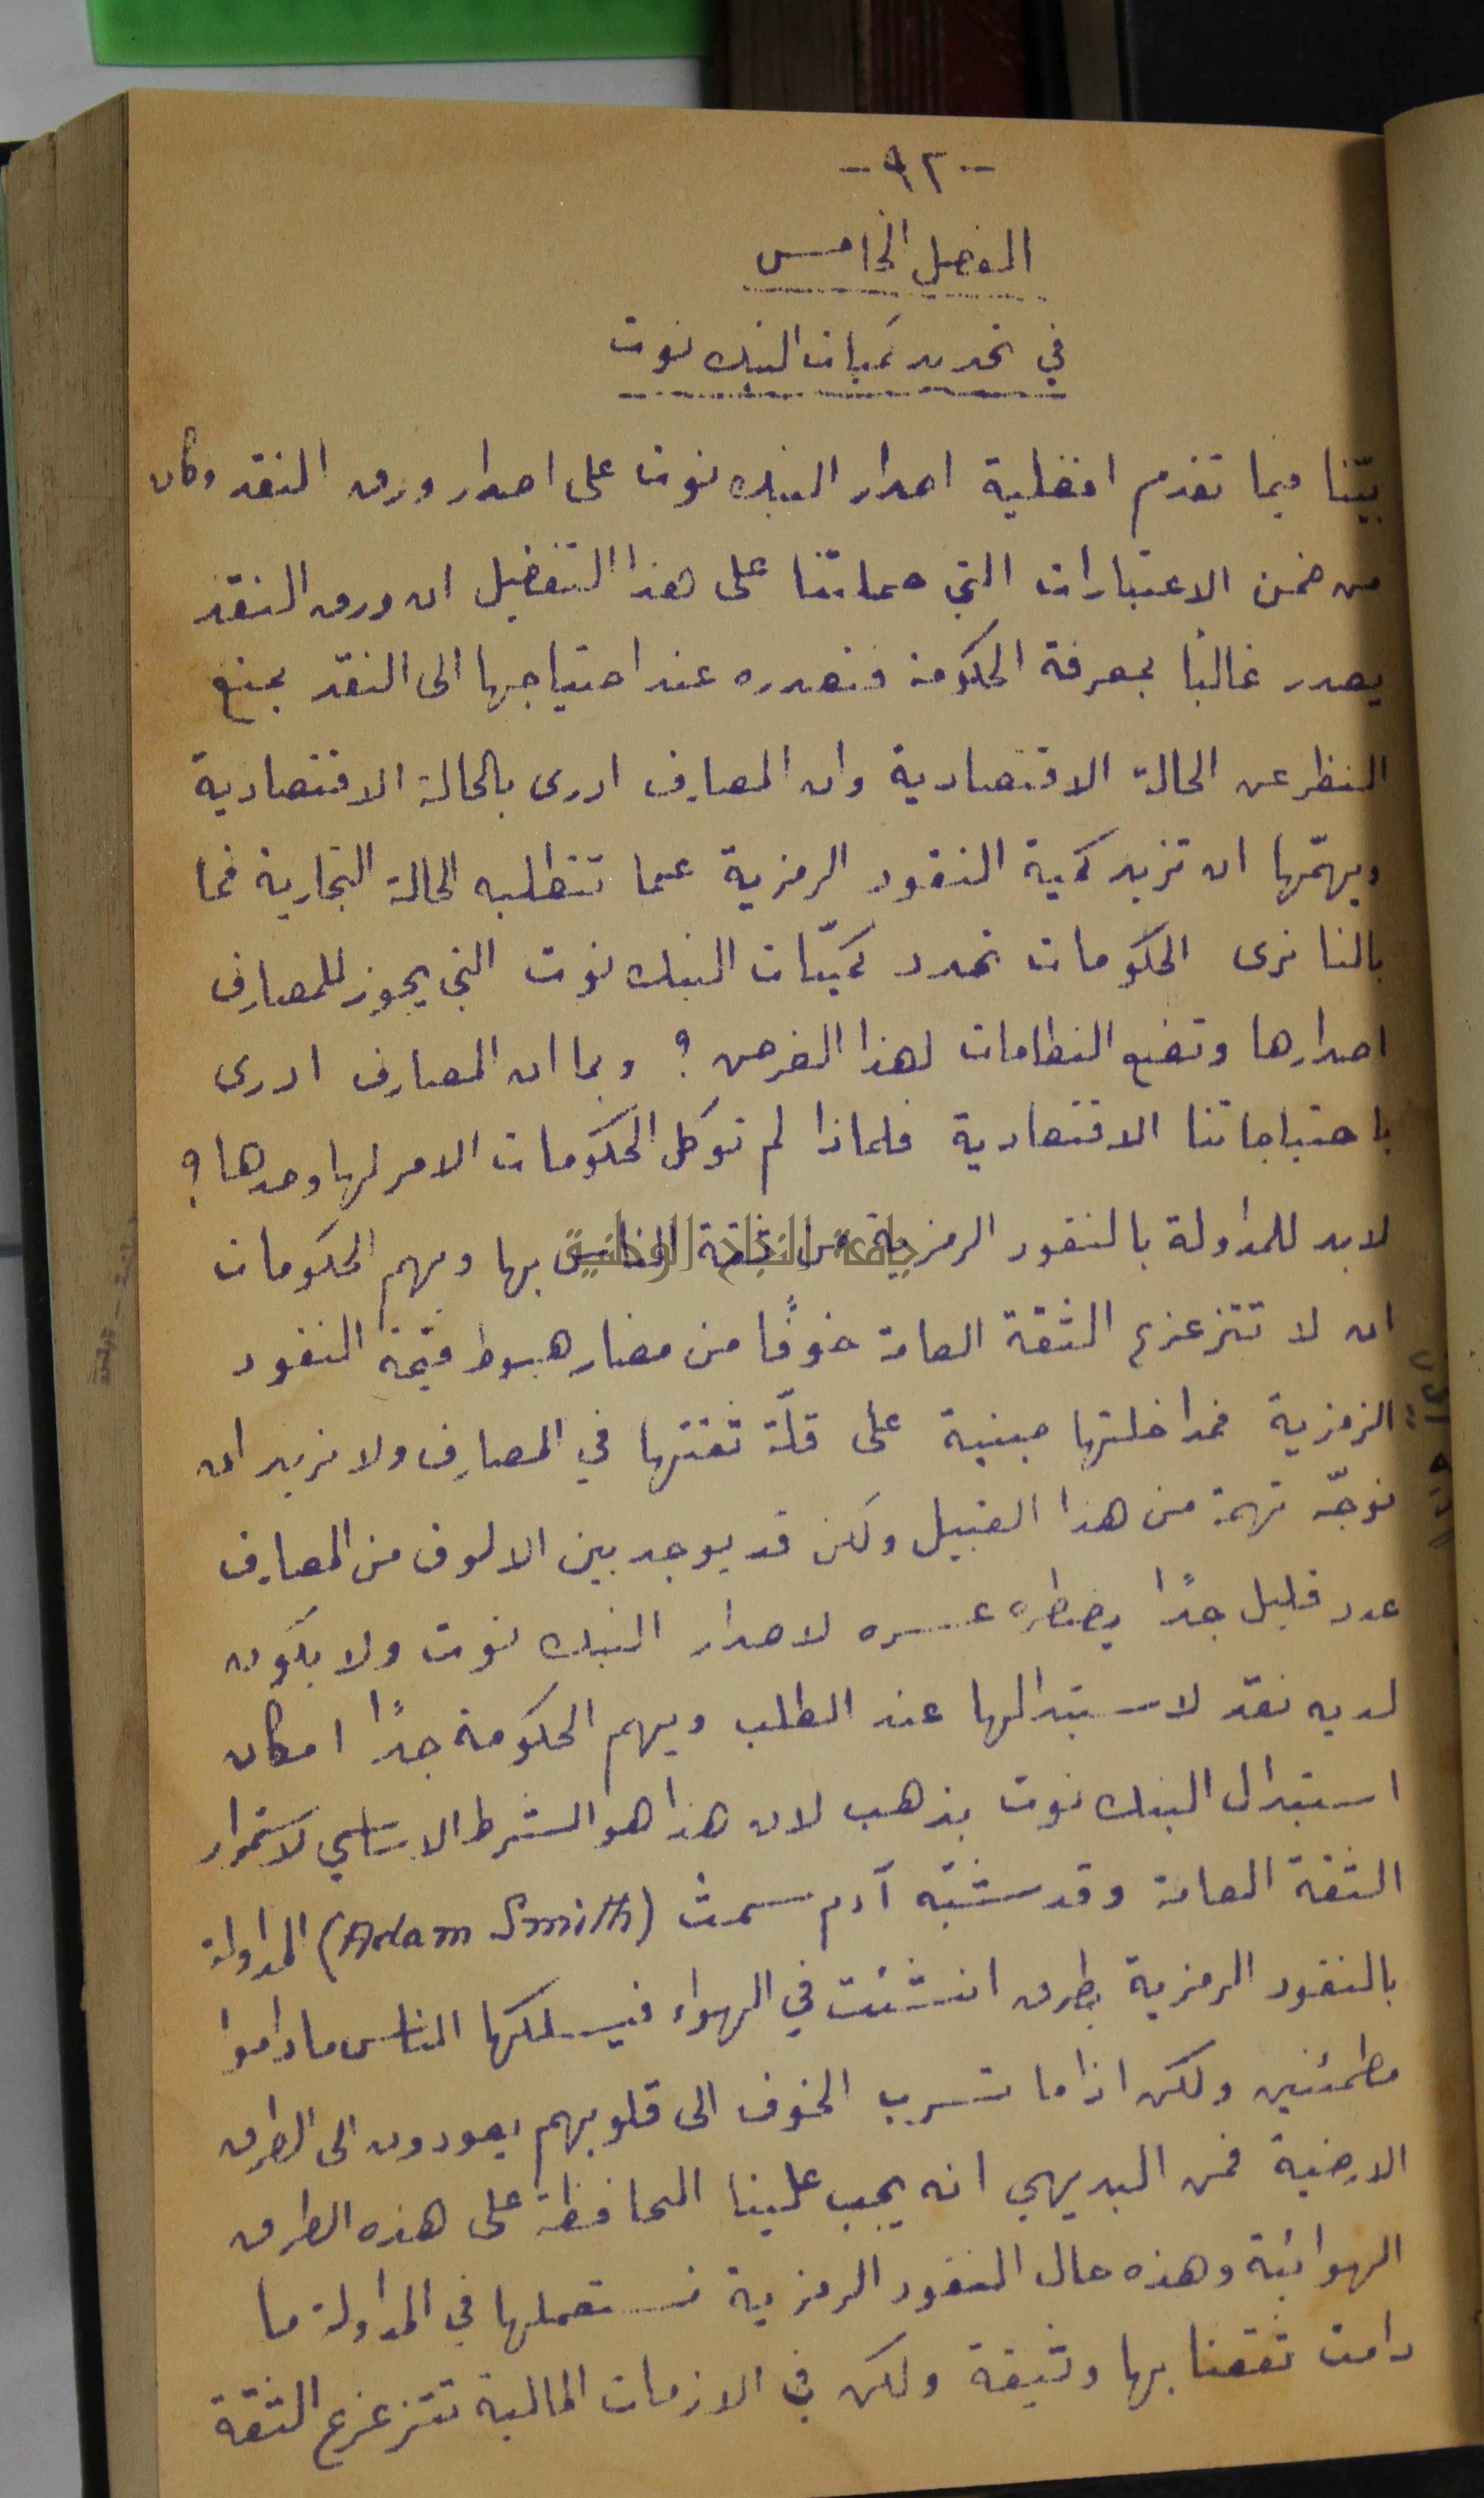 -٩٢-
الفصل الخامس
في تحديد كميات البنك نوت
بيّنا فيما تقدم افضلية اصدار البنك نوت على اصدار ورق النقد وكان
من ضمن الاعتبارات التي حملتنا على هذا التفضيل ان ورق النقد
يصدر غالبًا بمعرفة الحكومة فتصدره عند احتياجها الى النقد بمنع
النظر عن الحالة الاقتصادية وان المصارف ادرى بالحالة الاقتصادية
ويهمّها ان تزيد كمية النقود الرمزية عما تتطلبه الحالة التجارية فما
بالنا نرى الحكومات تحدد كميّات البنك نوت التي يجوز للمصارف
اصدارها وتضع النظامات لهذا الغرض؟ وبما ان المصارف ادرى
باحتياجاتنا الاقتصادية فلماذا لم توكل الحكومات الامر لها وحدها؟
لابد للمداولة بالنقود الرمزية من ثقة الناس بها ويهم الحكومات
جامعة النجاح الوطنية
ان لا تتزعزع الثقة العامة خوفًا من مضار هبوط قيمة النقود
الرمزية فمداخلتها مبنية على قلّة ثقتها في المصارف ولا نريد ان
نوجّه تهمة من هذا القبيل ولكن قد يوجد بين الالوف من المصارف
عدد قليل جدًا يضطره عسره لاصدار البنك نوت ولا يكون
لديه نقد لاستبدالها عند الطلب ويهم الحكومة جدًا امكان
استبدال البنك نوت بذهب لان هذا هو الشرط الاساسي لاستمرار
الثقة العامة وقد شبّه آدم سمث (Adam Smith) المداولة
بالنقود الرمزية بطرق انشئت في الهواء فيسلكها الناس ما داموا
مطمئنين ولكن اذا ما تسرب الخوف الى قلوبهم يعودون الى الطرق
الارضية فمن البديهي انه يجب علينا المحافظة على هذه الطرق
الهوائية وهذه حال النقود الرمزية نستعملها في المداولة ما
دامت ثقتنا بها وثيقة ولكن في الازمات المالية تتزعزع الثقة